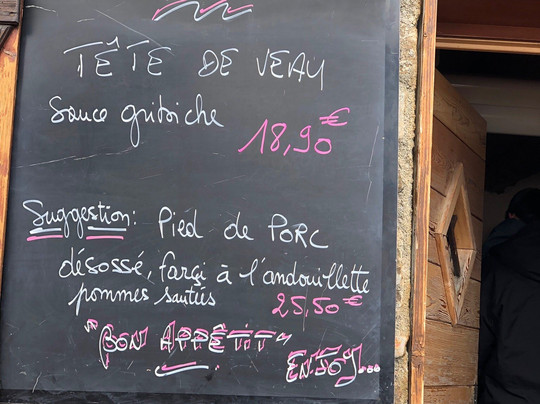 TÊTE DE VEAU
Sauce gribiche
18,90€
Suggestion: Pied de PORC
désossé, farçi à l'andouillette
pommes sautés
25,50€
"BON APPÊTIT"
ENJOY...